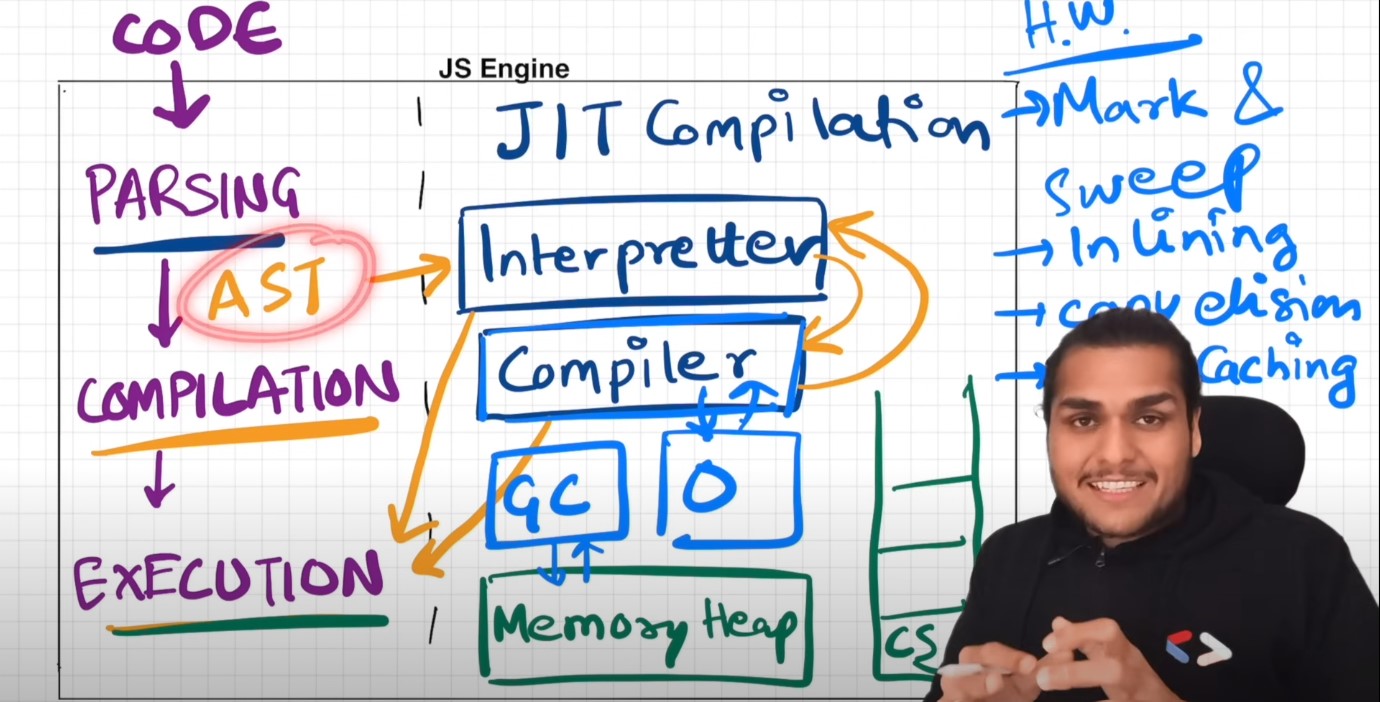 CODE
JS Engine
PARSING
AST
COMPILATION
EXECUTION
JIT Compilation
Interpretter
Compiler
GC
O
Memory Heap
CS
H.W.
→ Mark &
Sweep
→ Inlining
→ copy elision
→ Caching